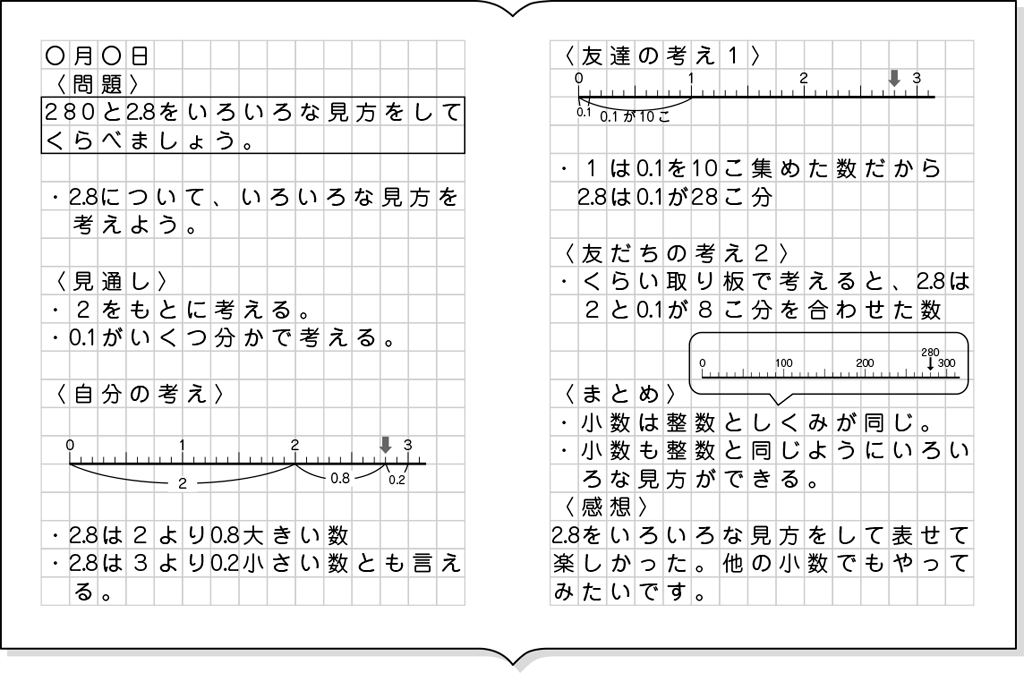 〇月〇日
〈問題〉
280と2.8をいろいろな見方をして
くらべましょう。
・2.8について、いろいろな見方を
考えよう。
〈見通し〉
・2をもとに考える。
・0.1がいくつ分かで考える。
〈自分の考え〉
0 1 2 3
2 0.8 0.2
・2.8は2より0.8大きい数
・2.8は3より0.2小さい数とも言え
る。
〈友達の考え1〉
0 1 2 3
0.1 0.1が10こ
・1は0.1を10こ集めた数だから
2.8は0.1が28こ分
〈友だちの考え2〉
・くらい取り板で考えると、2.8は
2と0.1が8こ分を合わせた数
280
0 100 200 300
〈まとめ〉
・小数は整数としくみが同じ。
・小数も整数と同じようにいろい
ろな見方ができる。
〈感想〉
2.8をいろいろな見方をして表せて
楽しかった。他の小数でもやって
みたいです。